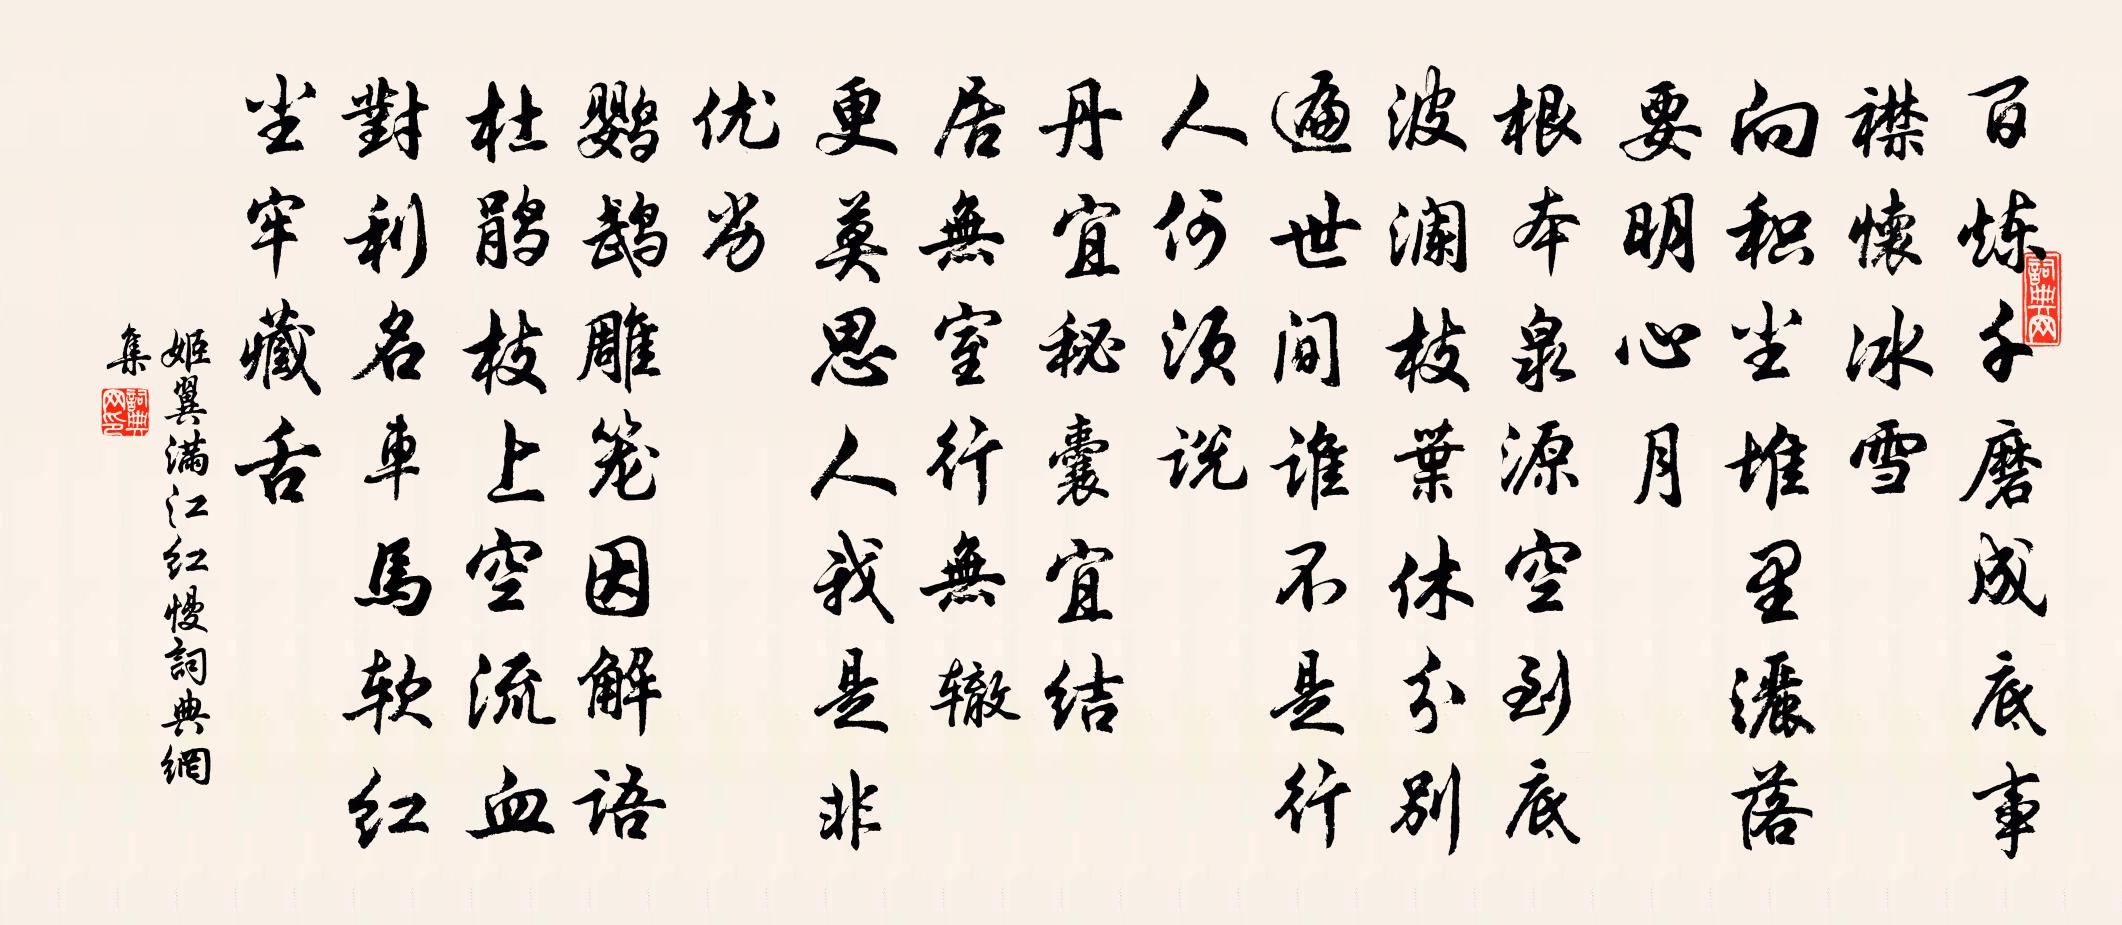 百炼千磨成底事
襟懷冰雪
向积尘堆里灑落
要明心月
根本泉源空到底
波澜枝葉休分别
遍世间谁不是行
人何须说
丹宜秘囊宜结
居無室行無辙
更莫思人我是非
优劣
鹦鹉雕笼因解语
杜鹃枝上空流血
對利名車馬软红
尘牢藏舌
姬翼满江红慢詞典網
集
詞典网
詞典网印